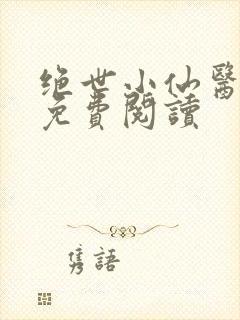 绝世小仙醫
免費閱讀
隽語